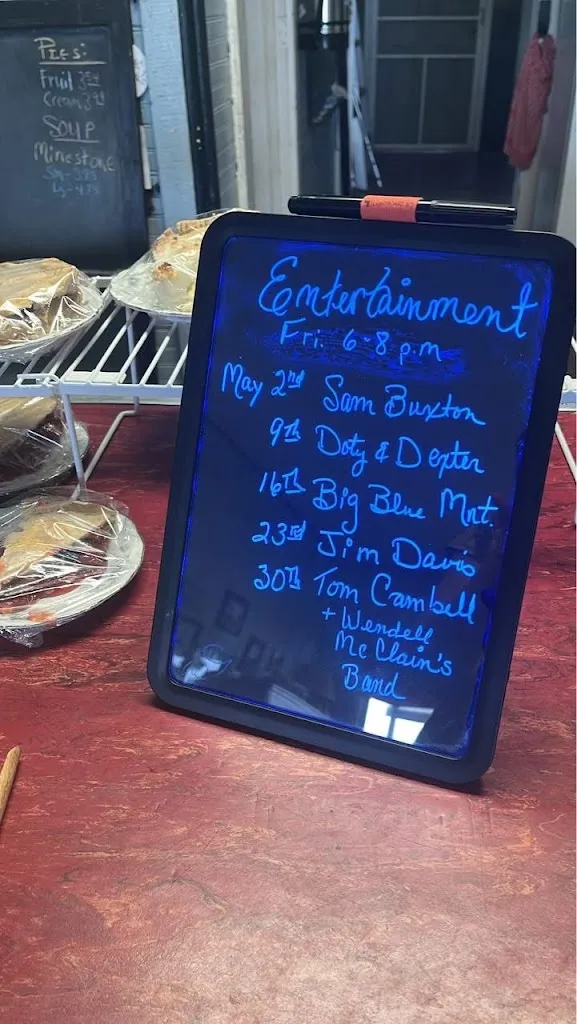 PIES:
Fruit
Cream
SOUP
Minestone
Entertainment
Fri. 6-8 p.m
May 2nd Sam Buxton
9th Doty & Depter
16th Big Blue Mnt.
23rd Jim Davis
30th Tom Cambell
+ Wendell
McClain's
Band